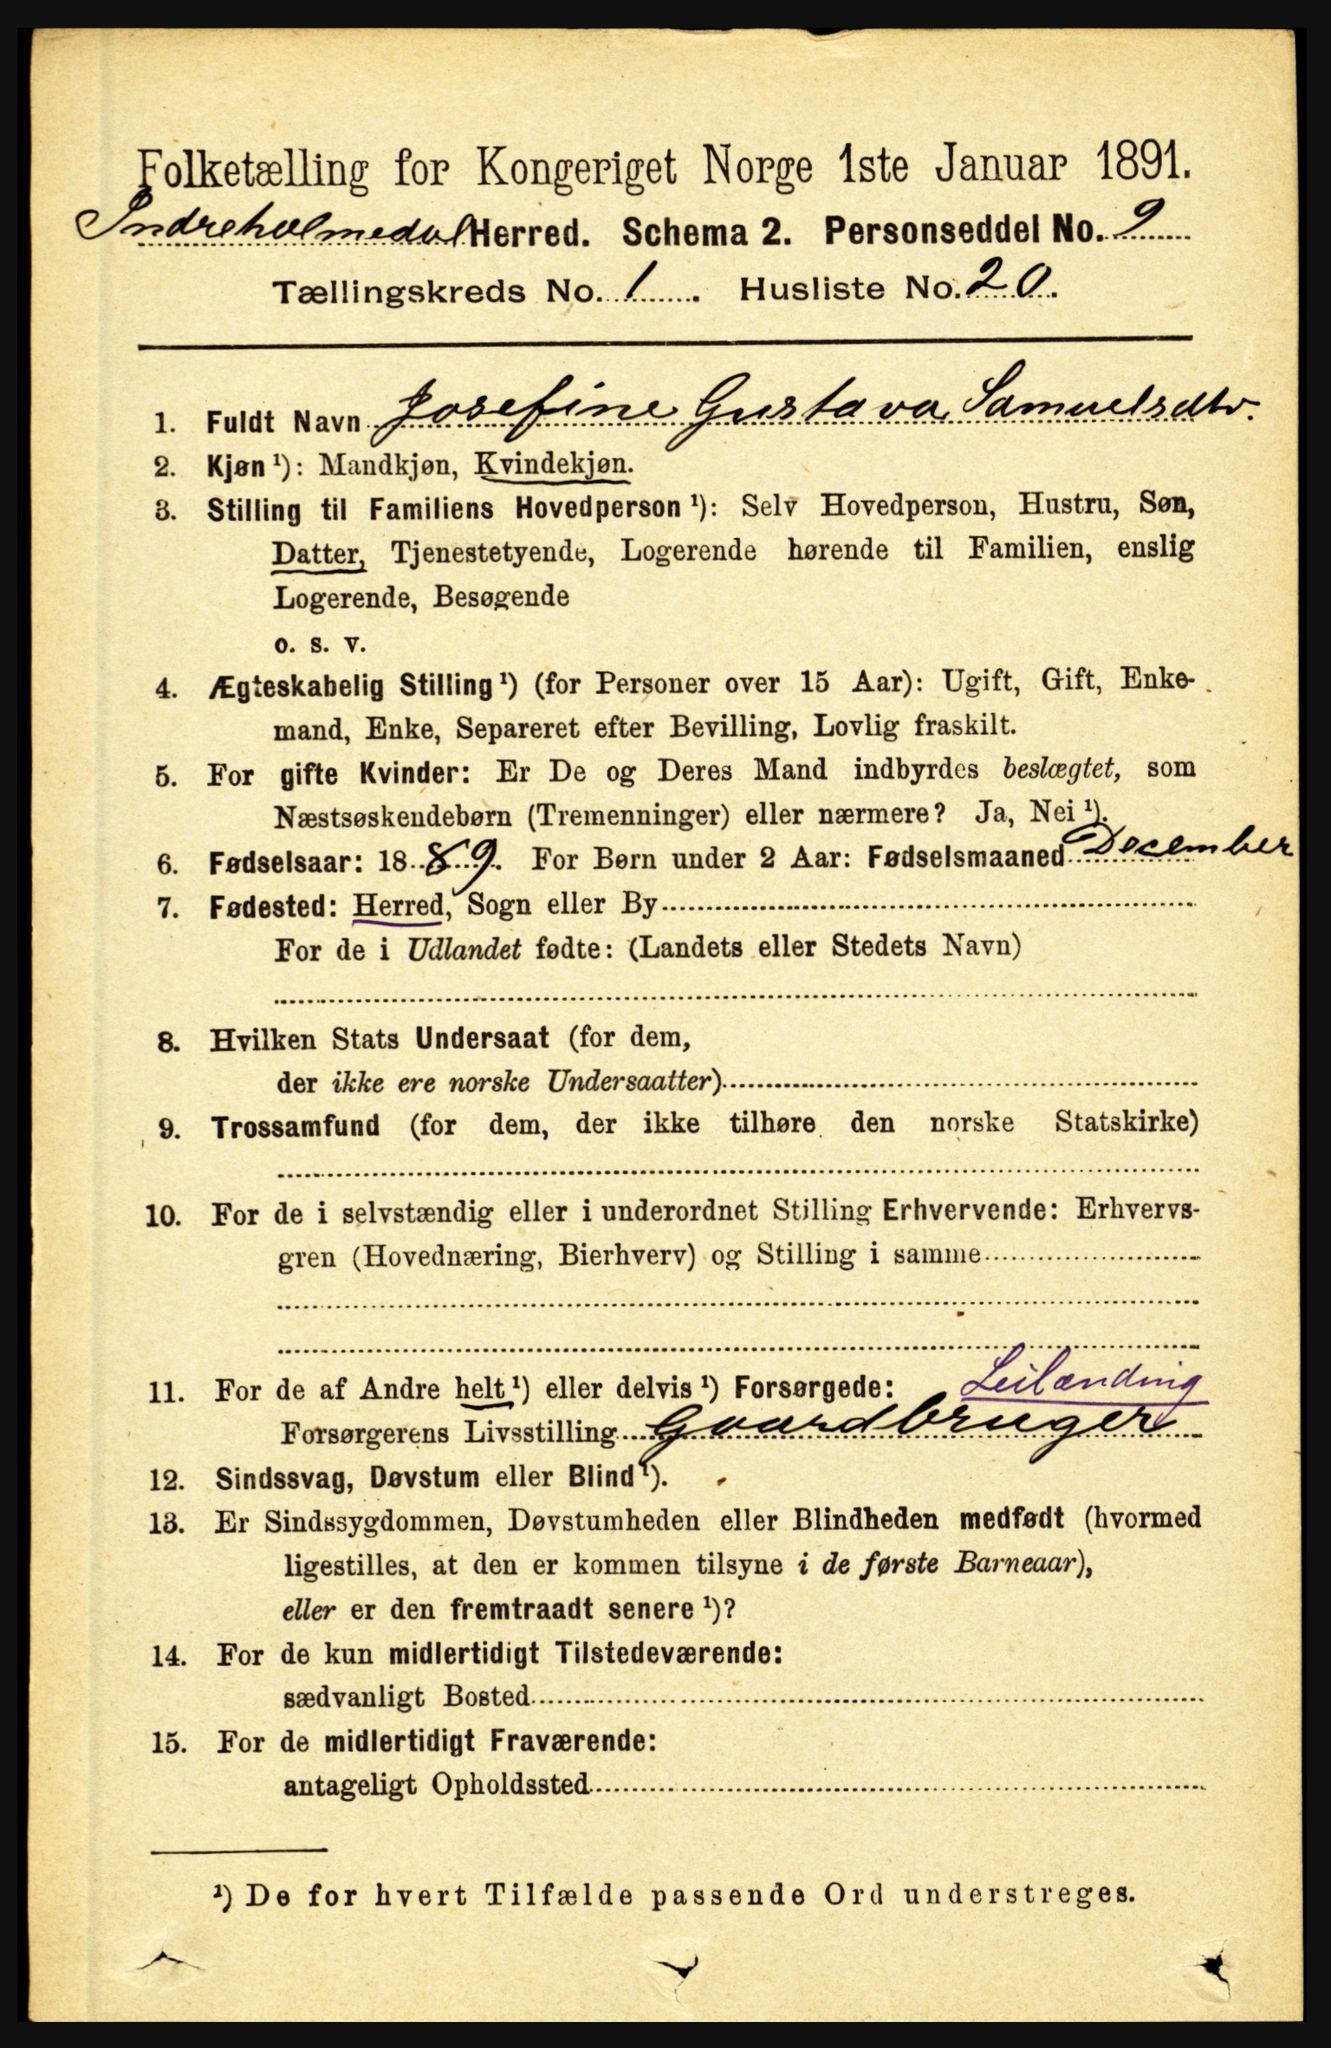 Folketælling for Kongeriget Norge 1ste Januar 1891.
Indreholmedal Herred. Schema 2. Personseddel No. 9
Tællingskreds No. 1. Husliste No. 20.
1. Fuldt Navn Josefine Gustava Samuelsdtr.
2. Kjøn ¹): Mandkjøn, Kvindekjøn.
3. Stilling til Familiens Hovedperson ¹): Selv Hovedperson, Hustru, Søn,
Datter, Tjenestetyende, Logerende hørende til Familien, enslig
Logerende, Besøgende
o. s. v.
4. Ægteskabelig Stilling ¹) (for Personer over 15 Aar): Ugift, Gift, Enke-
mand, Enke, Separeret efter Bevilling, Lovlig fraskilt.
5. For gifte Kvinder: Er De og Deres Mand indbyrdes beslægtet, som
Næstsøskendebørn (Tremenninger) eller nærmere? Ja, Nei ¹).
6. Fødselsaar: 1889. For Børn under 2 Aar: Fødselsmaaned December
7. Fødested: Herred, Sogn eller By
For de i Udlandet fødte: (Landets eller Stedets Navn)
8. Hvilken Stats Undersaat (for dem,
der ikke ere norske Undersaatter)
9. Trossamfund (for dem, der ikke tilhøre den norske Statskirke)
10. For de i selvstændig eller i underordnet Stilling Erhvervende: Erhvervs-
gren (Hovednæring, Bierhverv) og Stilling i samme
11. For de af Andre helt ¹) eller delvis ¹) Forsørgede: Leilænding
Forsørgerens Livsstilling Gaardbruger
12. Sindssvag, Døvstum eller Blind ¹).
13. Er Sindssygdommen, Døvstumheden eller Blindheden medfødt (hvormed
ligestilles, at den er kommen tilsyne i de første Barneaar),
eller er den fremtraadt senere ¹)?
14. For de kun midlertidigt Tilstedeværende:
sædvanligt Bosted
15. For de midlertidigt Fraværende:
antageligt Opholdssted
¹) De for hvert Tilfælde passende Ord understreges.